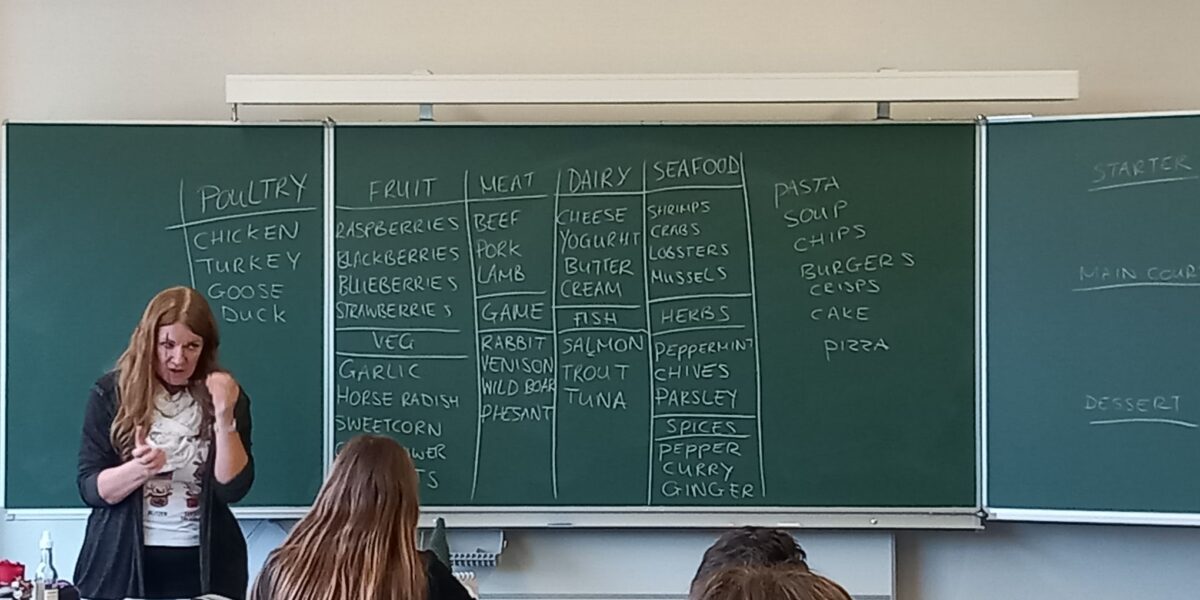 POULTRY
CHICKEN
TURKEY
GOOSE
DUCK
FRUIT
RASPBERRIES
BLACKBERRIES
BLUEBERRIES
STRAWBERRIES
VEG
GARLIC
HORSE RADISH
SWEETCORN
MEAT
BEEF
PORK
LAMB
GAME
RABBIT
VENISON
WILD BOAR
PHESANT
DAIRY
CHEESE
YOGURHT
BUTTER
CREAM
FISH
SALMON
TROUT
TUNA
SEAFOOD
SHRIMPS
CRABS
LOBSTERS
MUSSELS
HERBS
PEPPERMINT
CHIVES
PARSLEY
SPICES
PEPPER
CURRY
GINGER
PASTA
SOUP
CHIPS
BURGERS
CRISPS
CAKE
PIZZA
STARTER
MAIN COUR
DESSERT